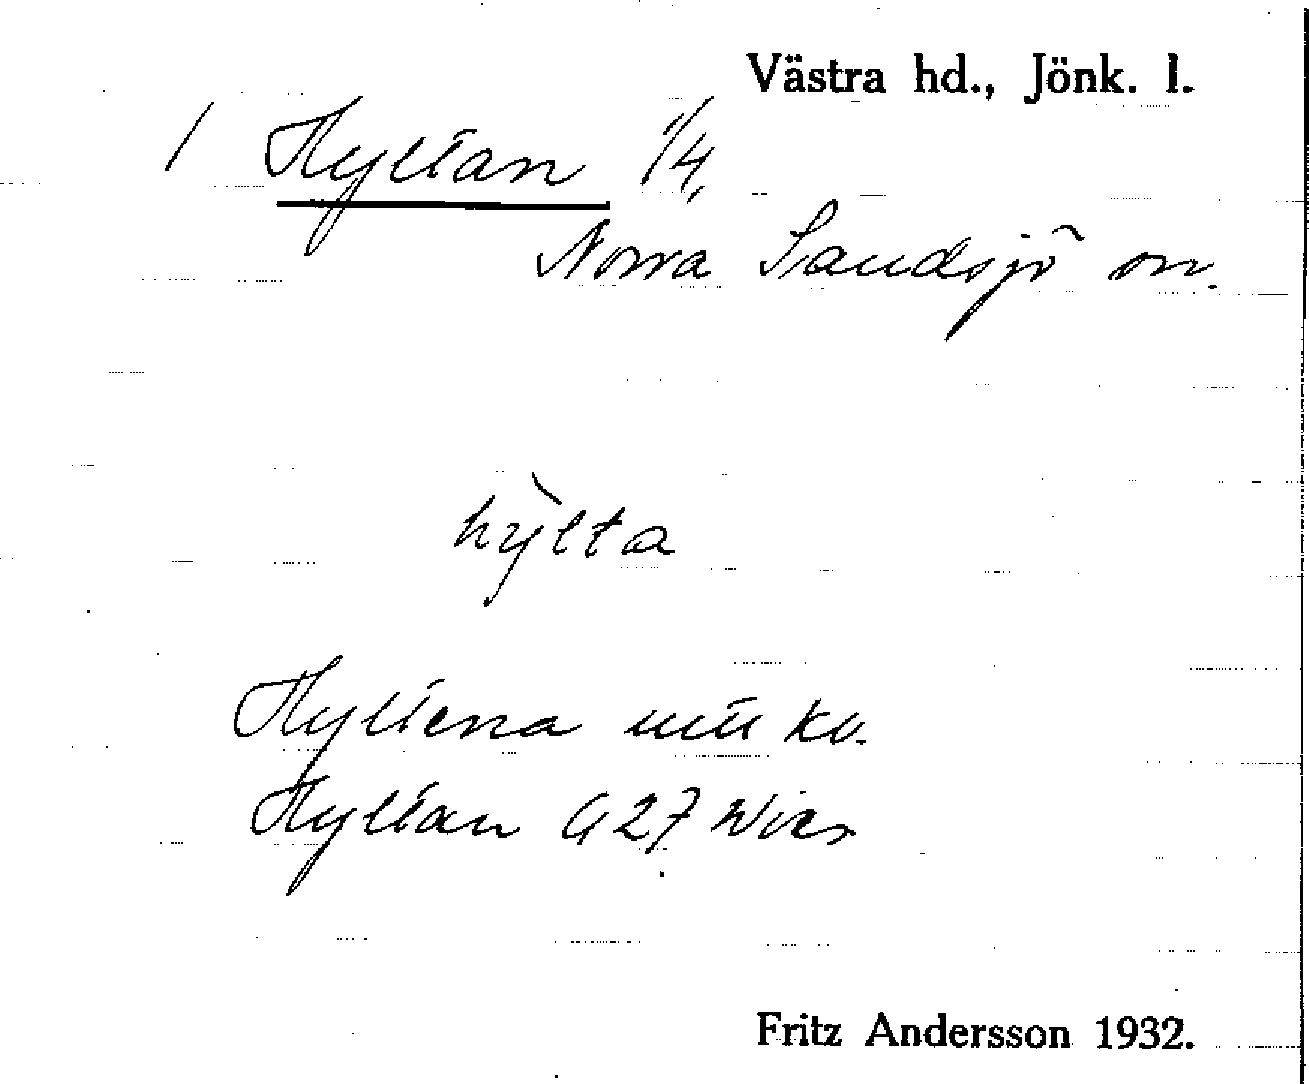 Västra hd., Jönk. l.
/ Hyltan 1/4,
Norra Sandsjö sn.
hy̌lta
Hyltena utn kv.
Hyltan G 27 Wirs
Fritz Andersson 1932.